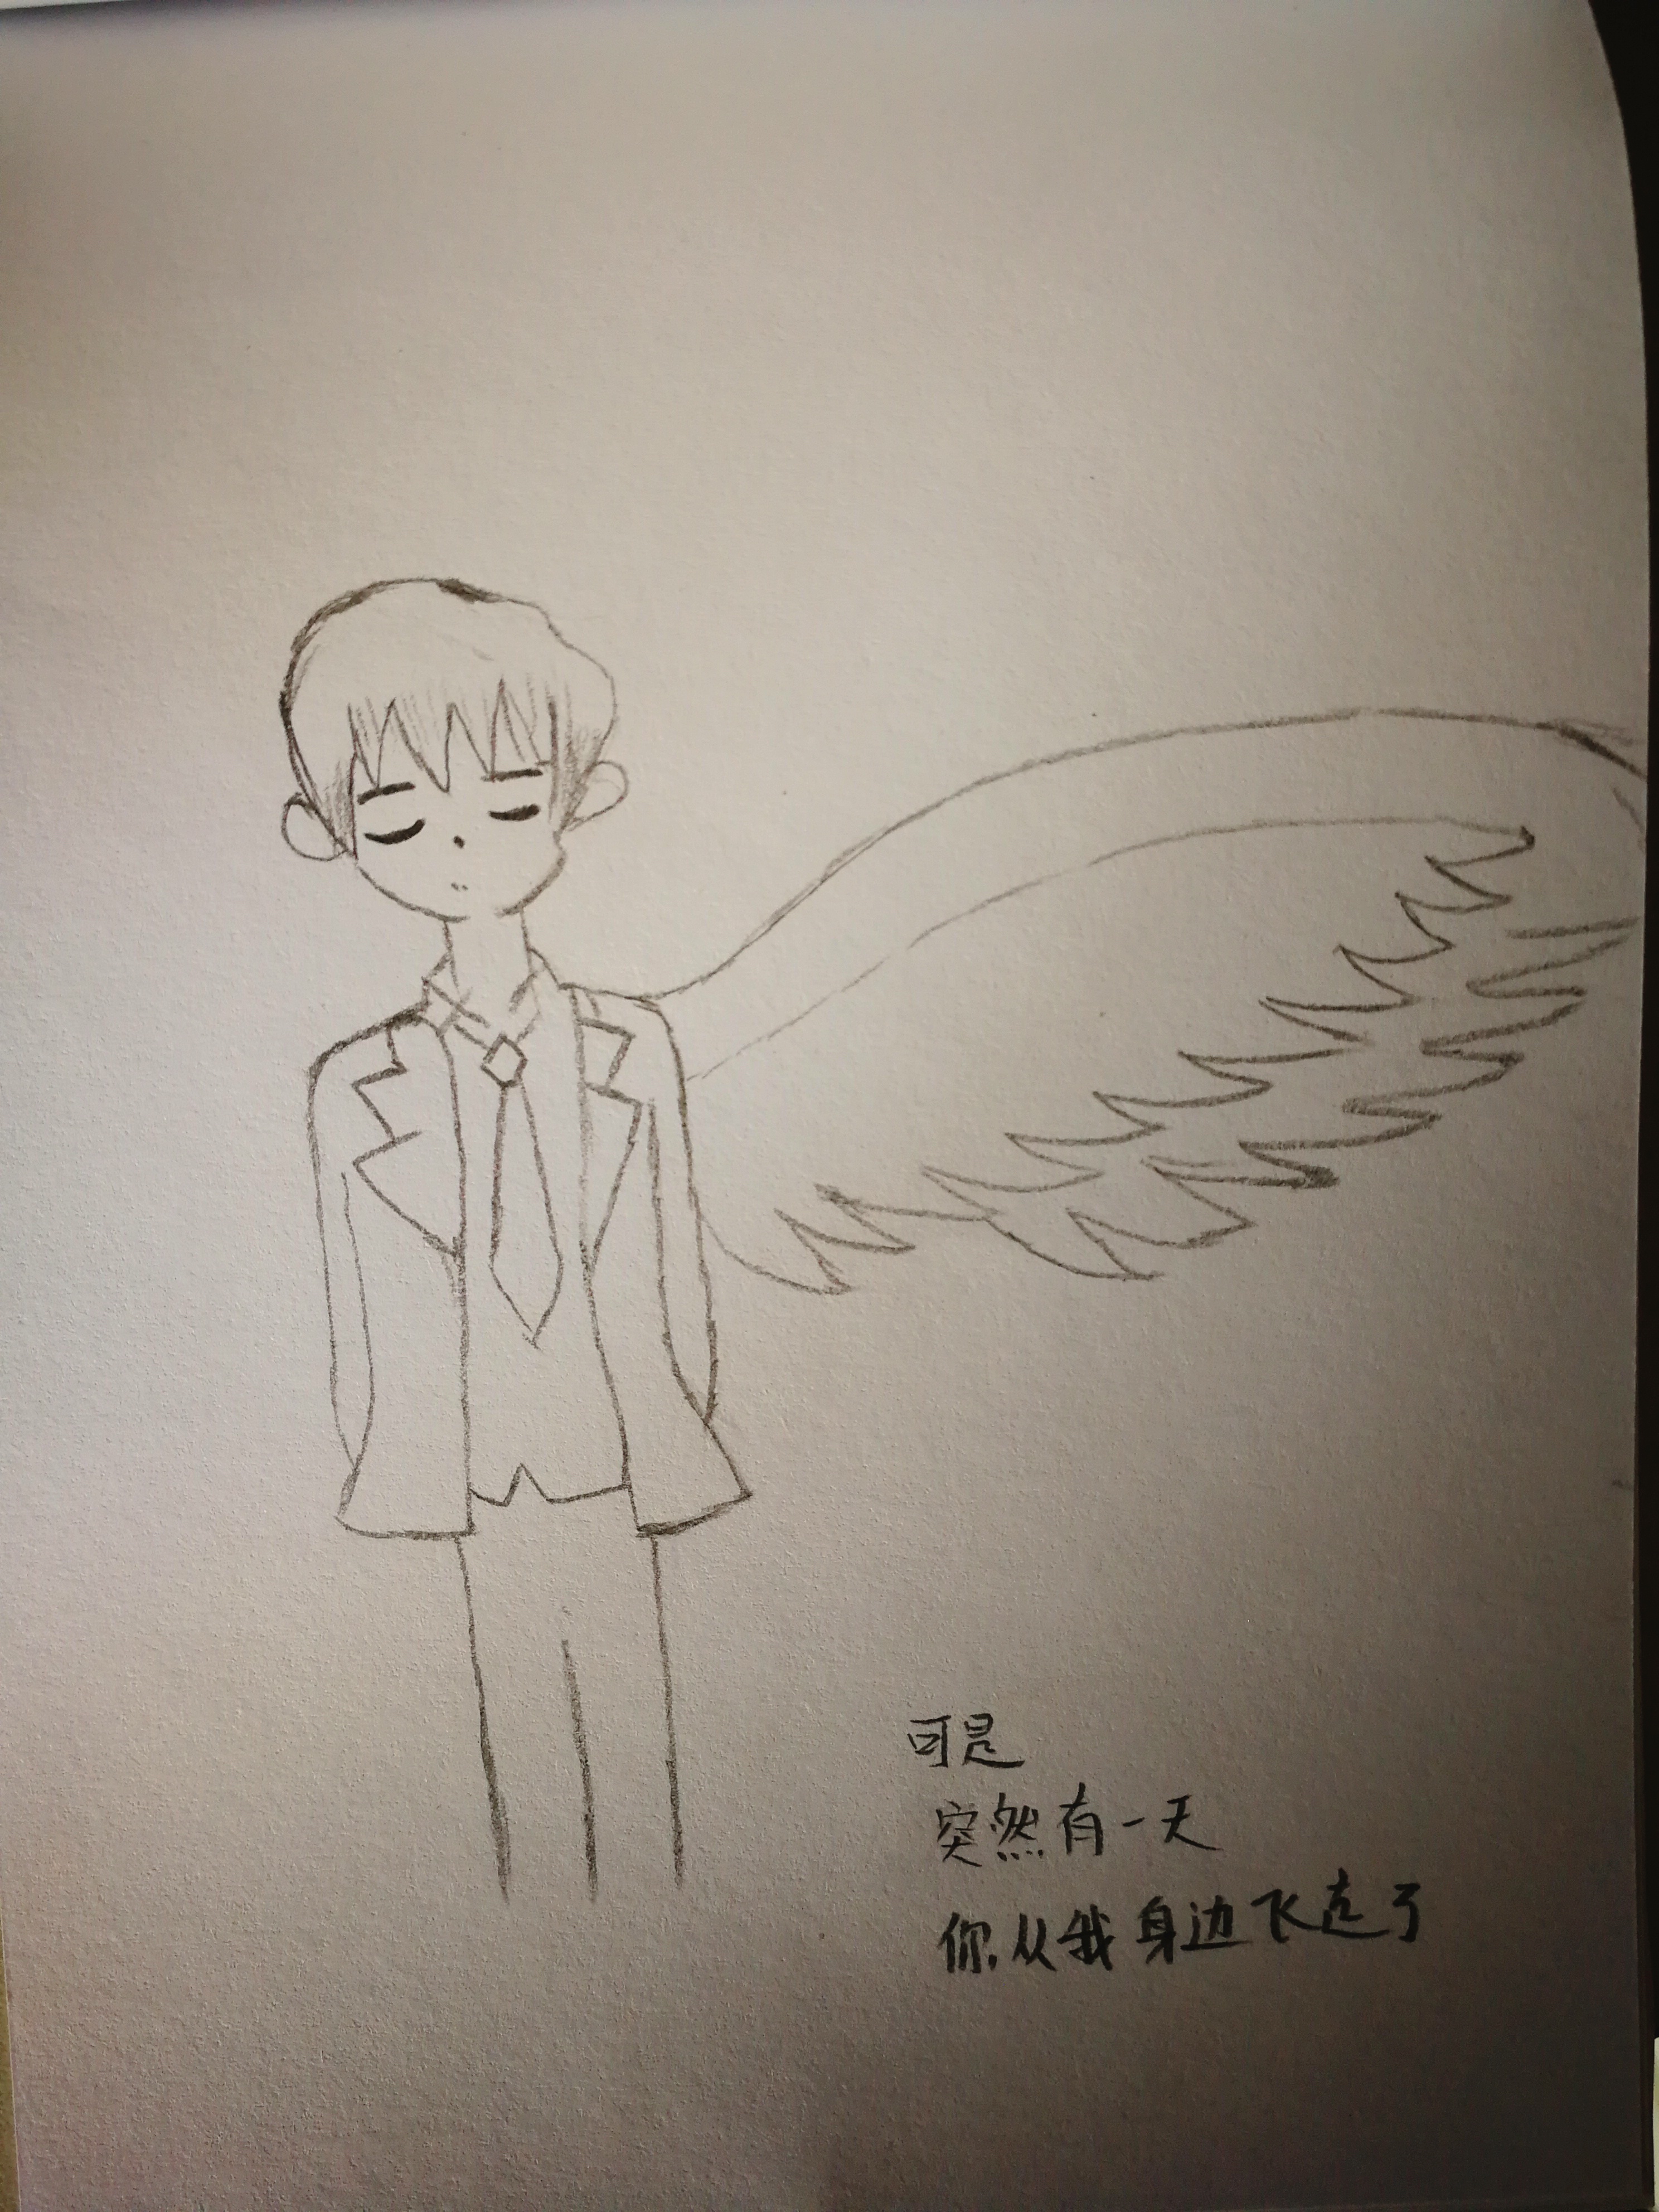 可是
突然有一天
你从我身边飞走了